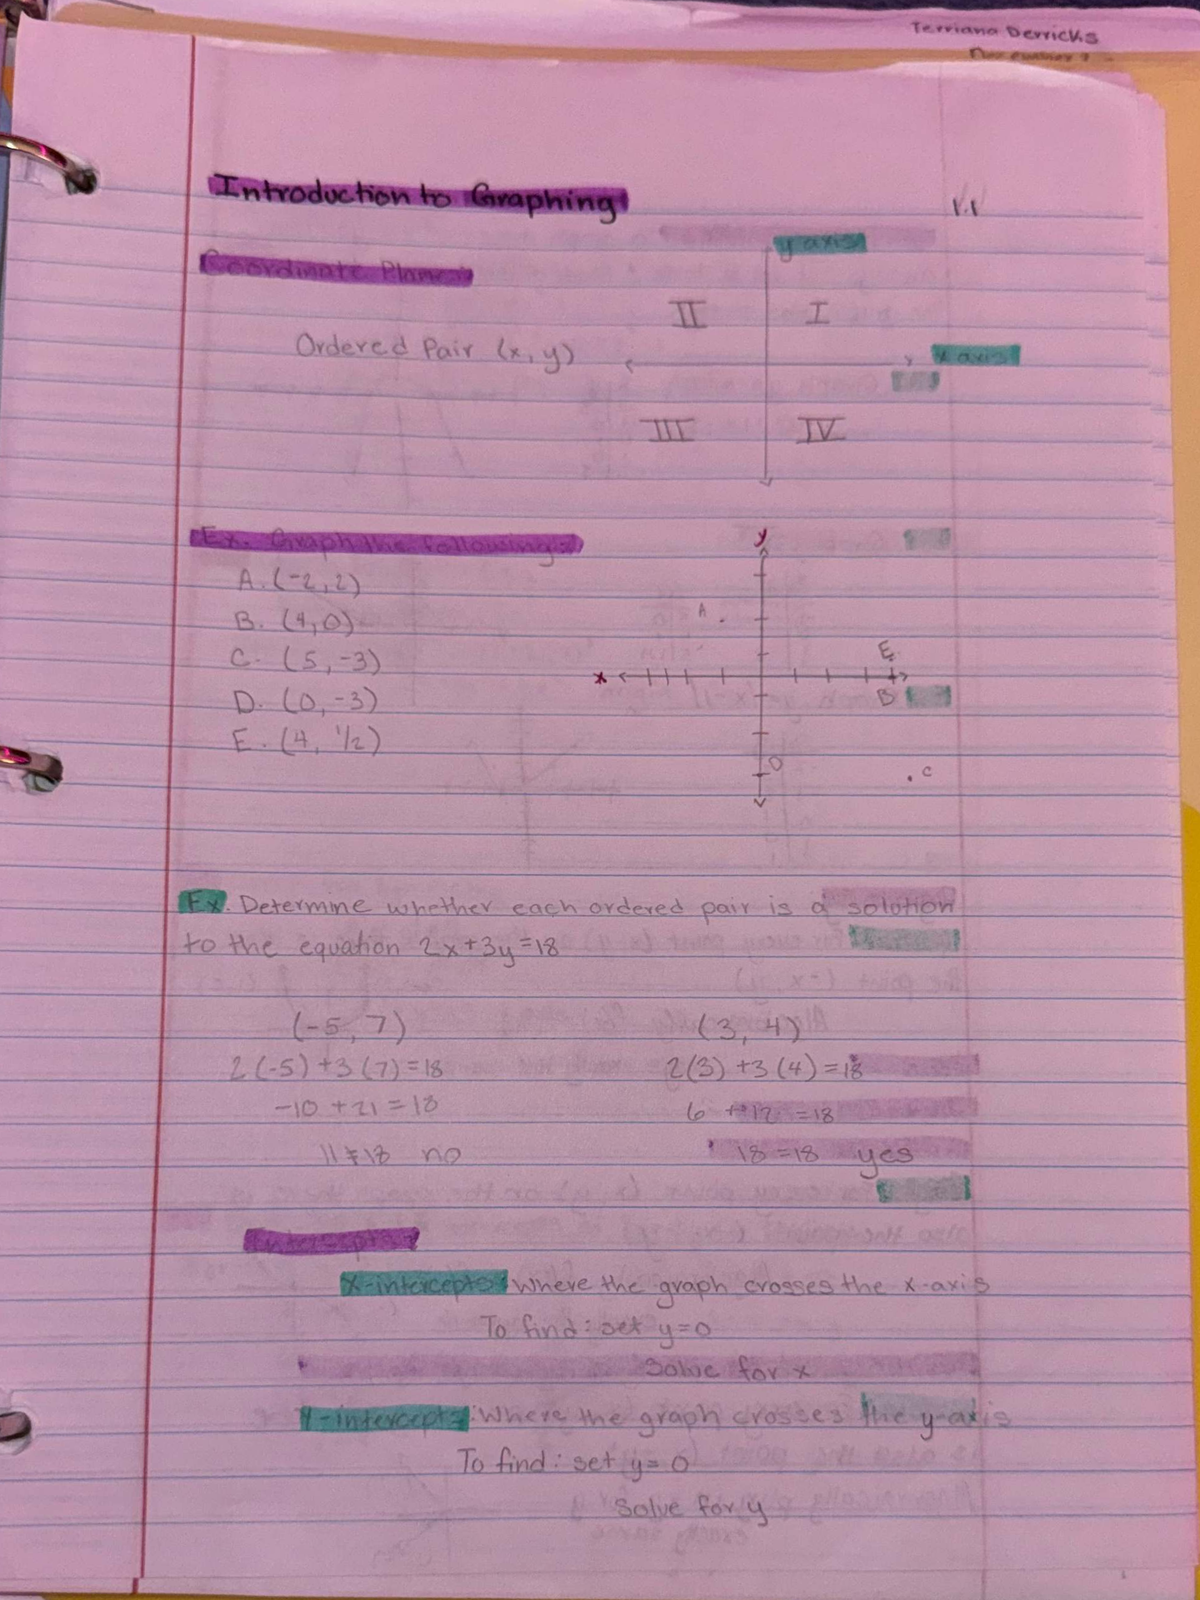 Terriana Derricks
Introduction to Graphing
1.1
y axis
Coordinate Plane:
II
I
Ordered Pair (x, y)
x axis
III
IV
Ex. Graph the following:
y
A. (-2, 2)
A
B. (4, 0)
C. (5, -3)
E
x
B
D. (0, -3)
E. (4, 1/2)
D
C
Ex. Determine whether each ordered pair is a solution
to the equation 2x+3y=18
(-5, 7)
(3, 4)
2(-5)+3(7)=18
2(3)+3(4)=18
-10+21=18
6+12=18
11≠18 no
18=18 yes
Intercepts:
X-intercepts: Where the graph crosses the x-axis
To find: set y=0
Solve for x
Y-intercepts: Where the graph crosses the y-axis
To find: set y=0
Solve for y